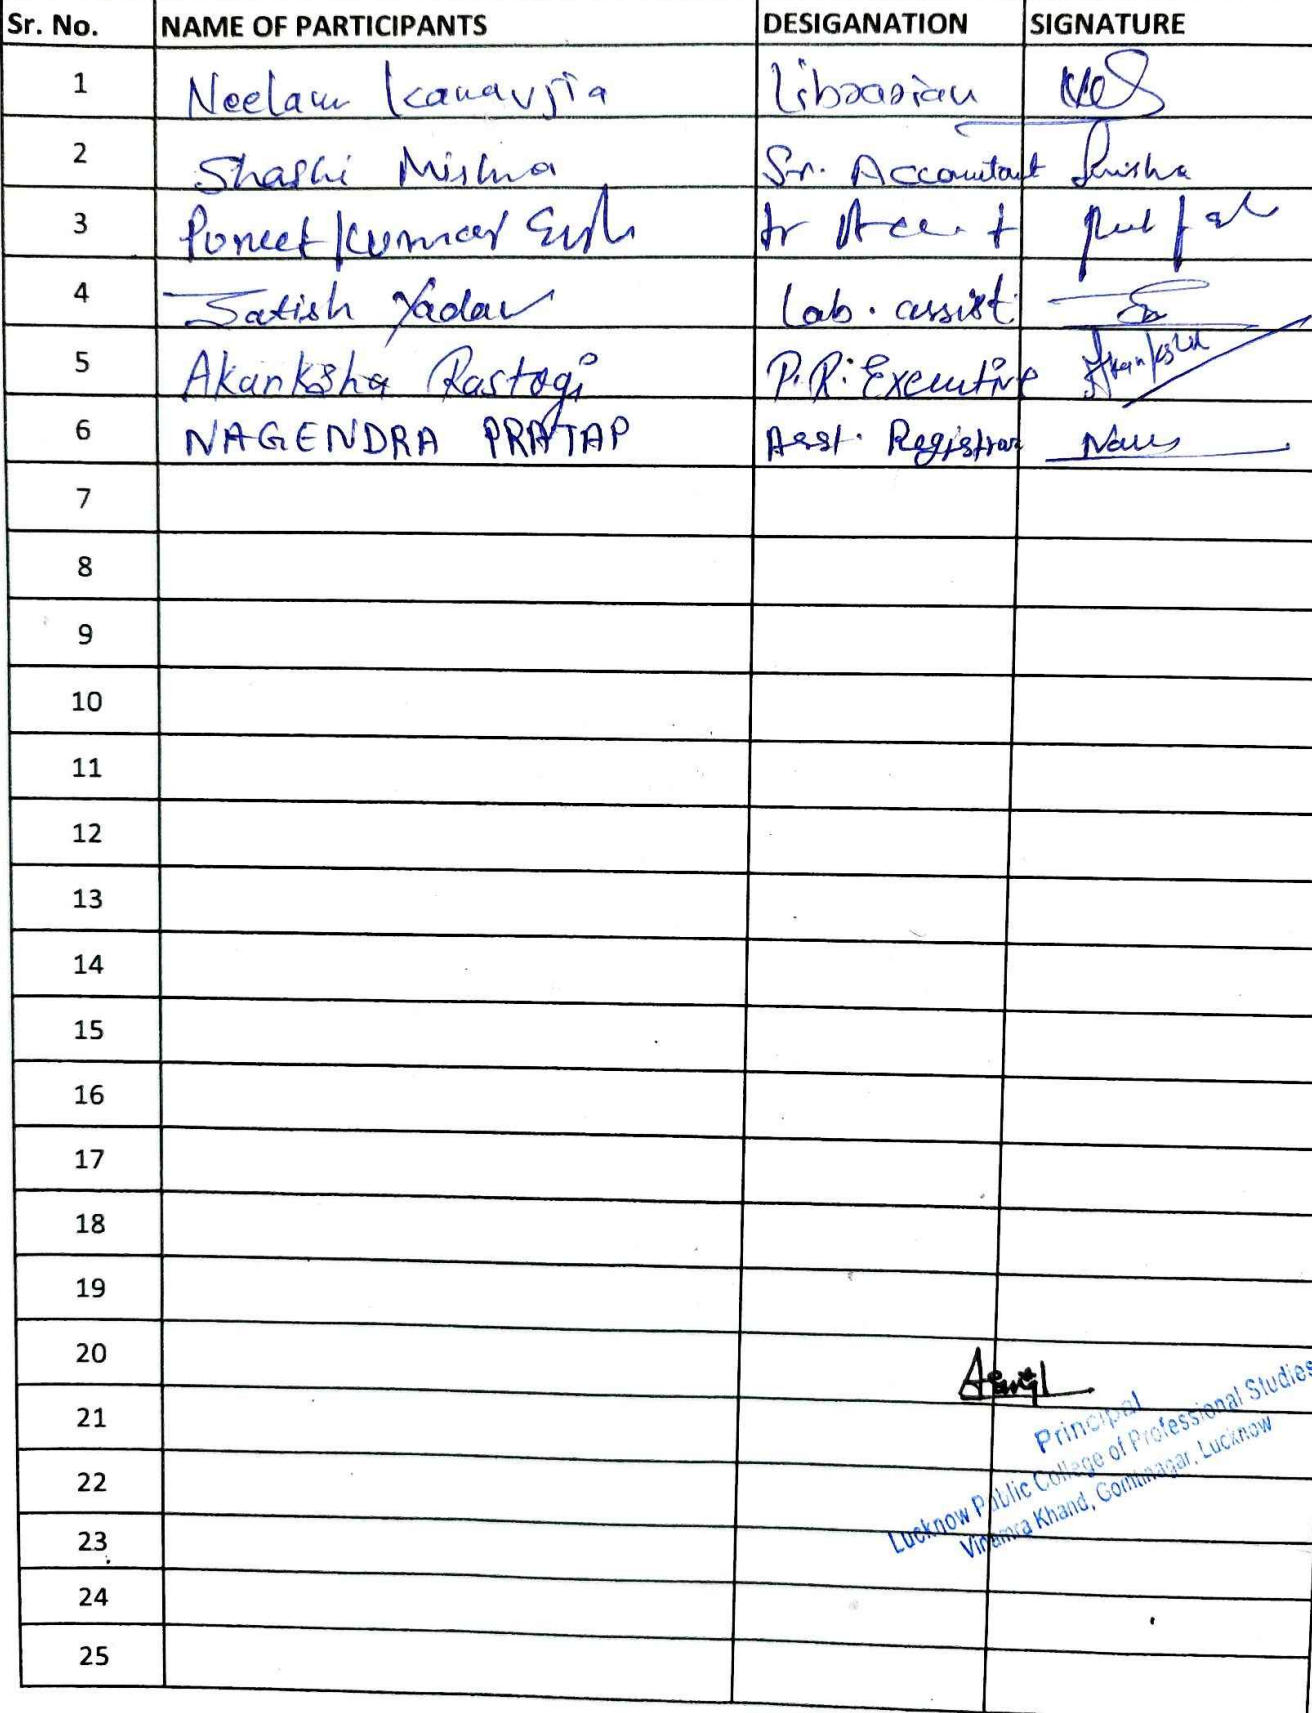 Sr. No. NAME OF PARTICIPANTS DESIGANATION SIGNATURE
1 Neelam Kanavjia Librarian
2 Shashi Mishra Sr. Accountant
3 Puneet Kumar
4 Satish Yadav Lab. assist.
5 Akanksha Rastogi P.R. Executive Akanksha
6 NAGENDRA PRATAP Asst. Registrar
7
8
9
10
11
12
13
14
15
16
17
18
19
20
21
22
23
24
25
Principal
Lucknow Public College of Professional Studies
Vinamra Khand, Gomtinagar, Lucknow